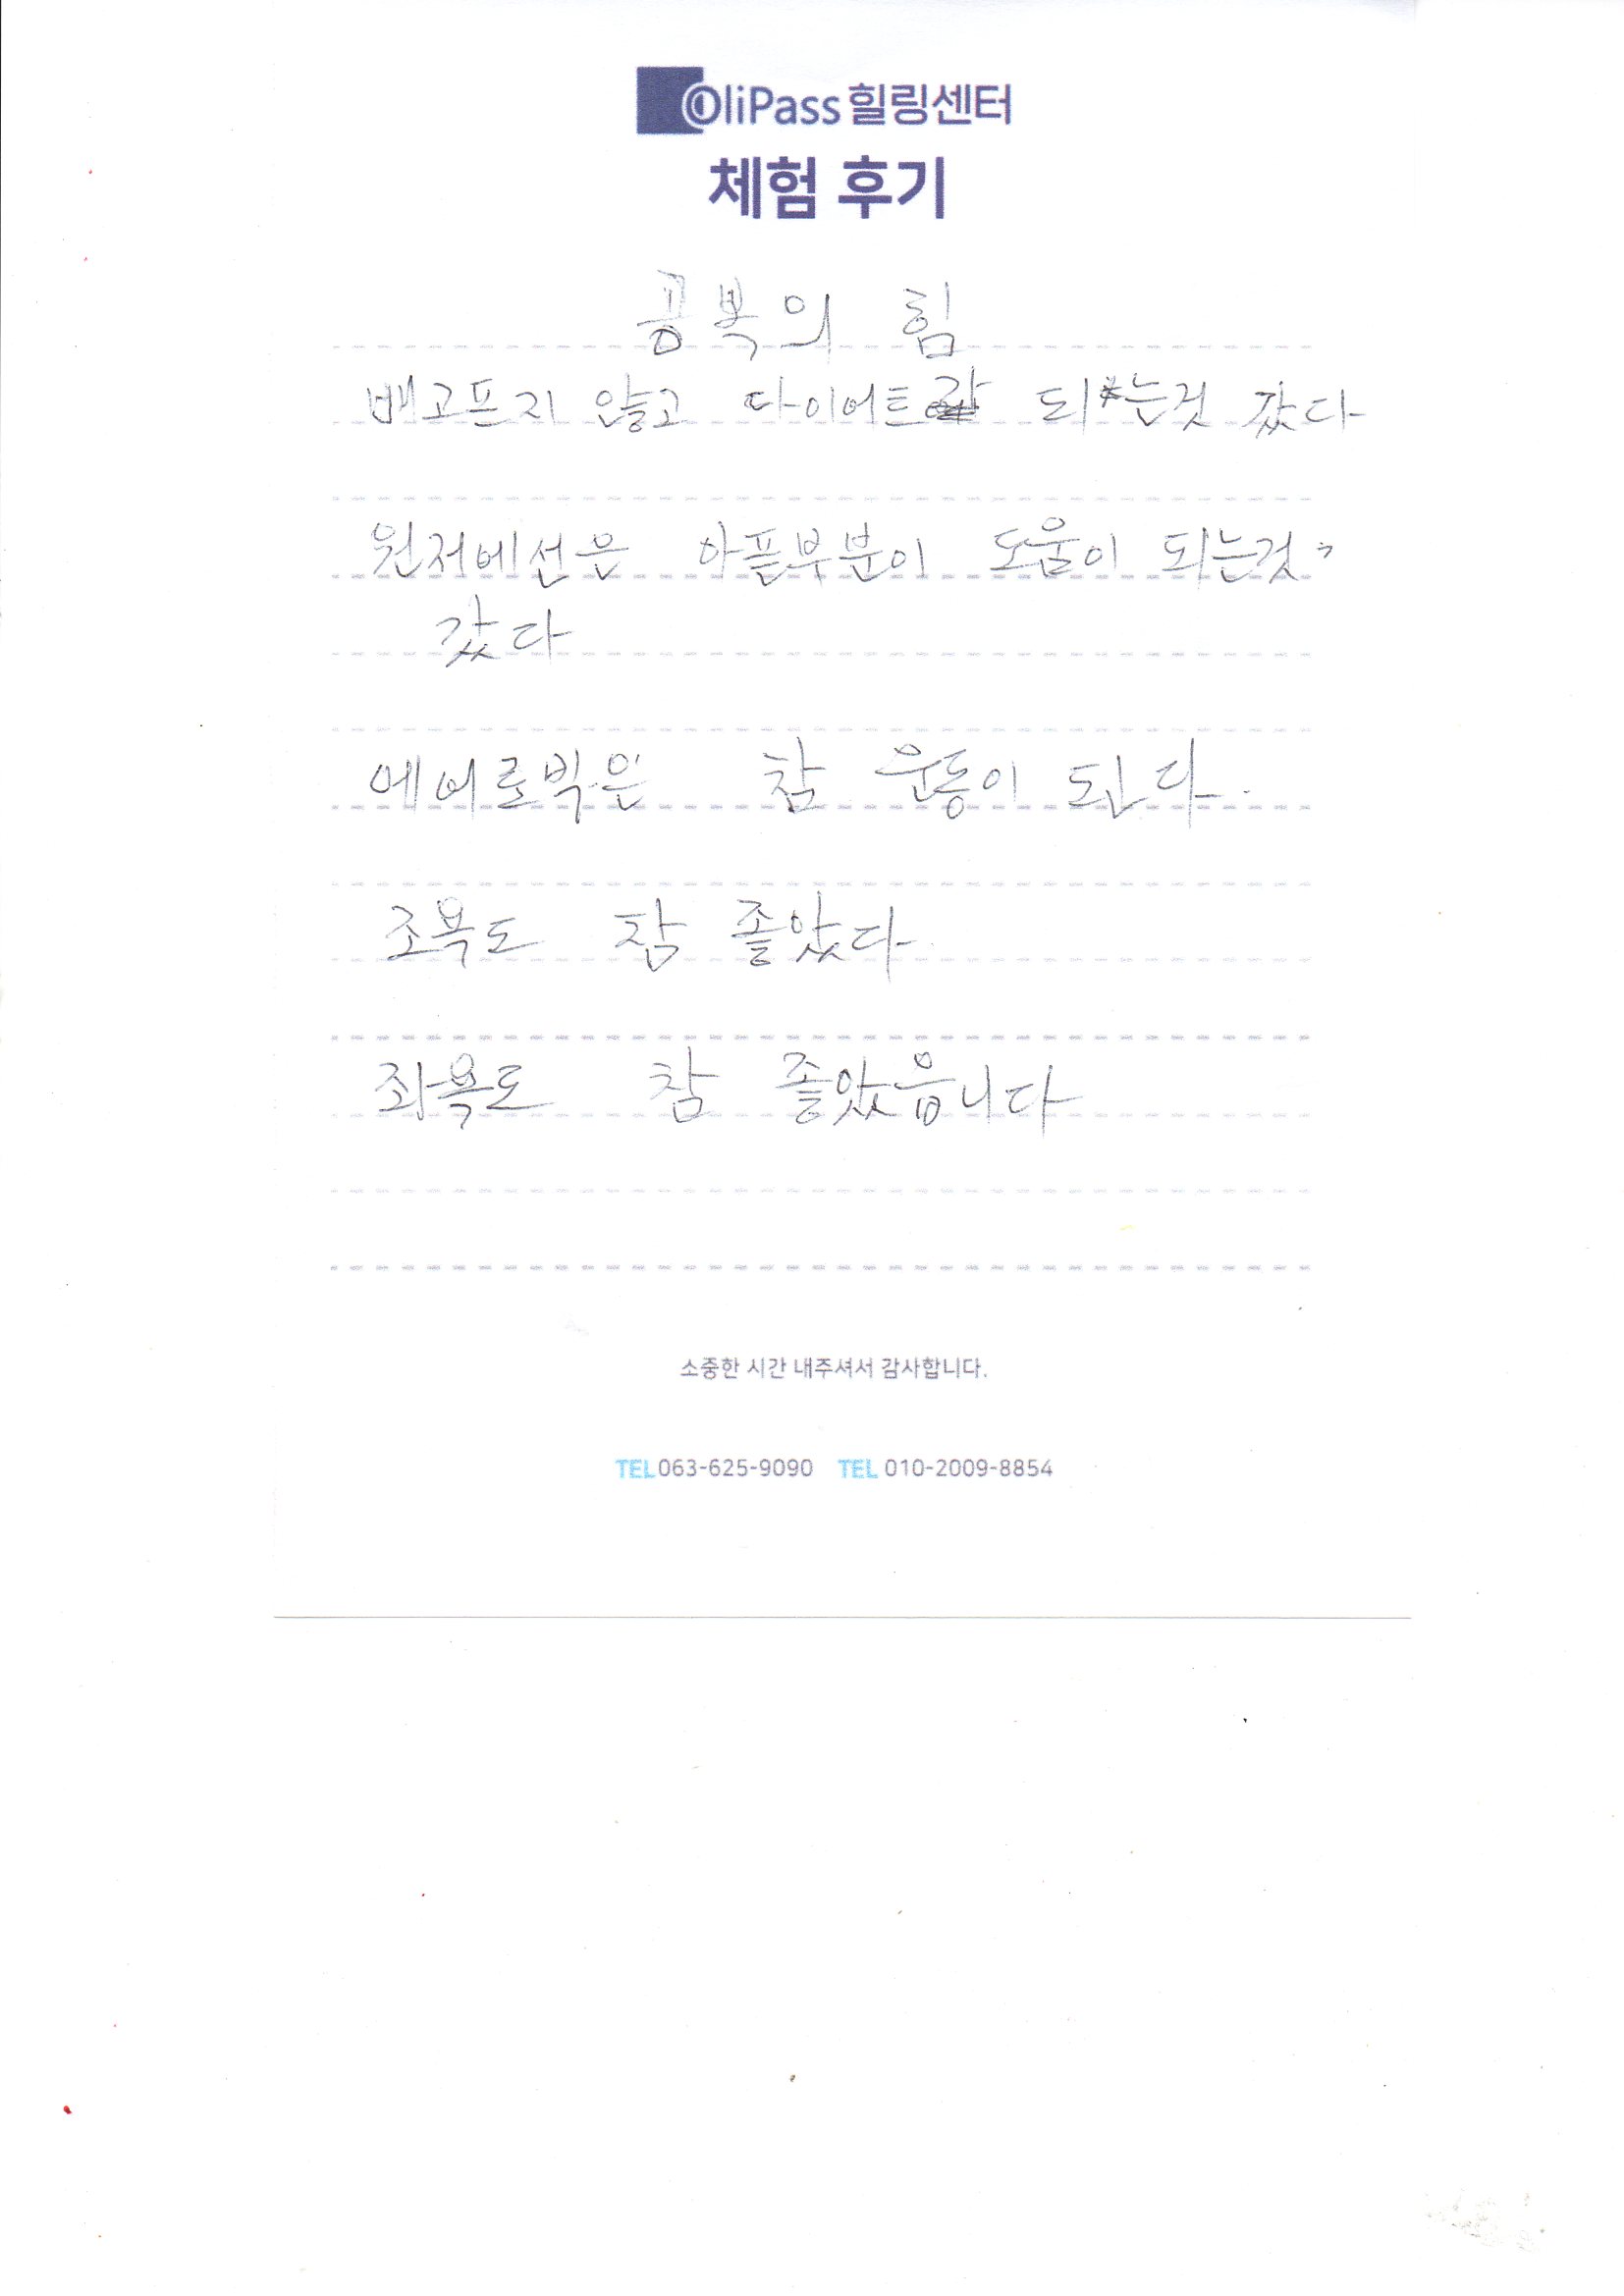 OliPass 힐링센터
체험 후기
공복의 힘
배고프지 않고 다이어트 되는것 갔다
원저베선은 아픈부분이 도움이 되는것
갔다
에어로빅은 참 운동이 된다.
조욕도 참 좋았다
좌욕도 참 좋았읍니다
소중한 시간 내주셔서 감사합니다.
TEL 063-625-9090 TEL 010-2009-8854